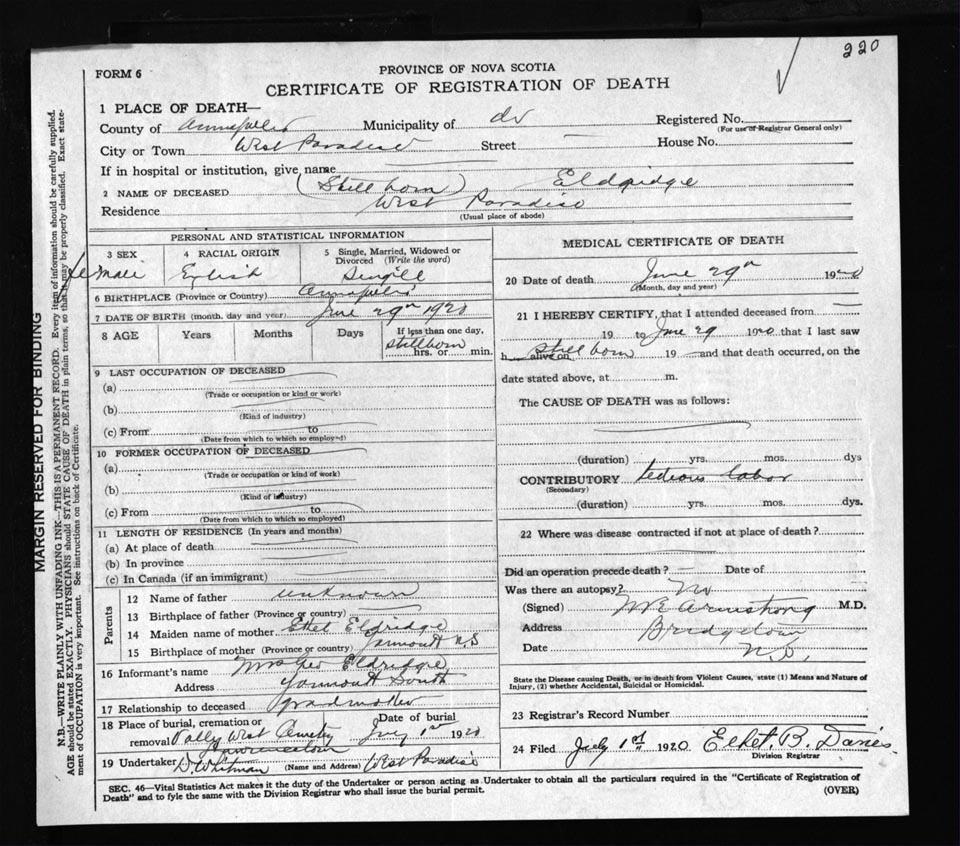 220
FORM 6
PROVINCE OF NOVA SCOTIA
CERTIFICATE OF REGISTRATION OF DEATH
1 PLACE OF DEATH—
County of Annapolis Municipality of do Registered No.
(For use of Registrar General only)
City or Town West Paradise Street — House No.
If in hospital or institution, give name
2 NAME OF DECEASED (Still born) Eldridge
Residence West Paradise
(Usual place of abode)
PERSONAL AND STATISTICAL INFORMATION
3 SEX 4 RACIAL ORIGIN 5 Single, Married, Widowed or Divorced (Write the word)
female English Single
6 BIRTHPLACE (Province or Country) Annapolis
7 DATE OF BIRTH (month, day and year) June 29th 1920
8 AGE Years Months Days If less than one day,
stillborn
hrs. or min.
9 LAST OCCUPATION OF DECEASED
(a)
(Trade or occupation or kind or work)
(b)
(Kind of industry)
(c) From to
(Date from which to which so employed)
10 FORMER OCCUPATION OF DECEASED
(a)
(Trade or occupation or kind of work)
(b)
(Kind of industry)
(c) From to
(Date from which to which so employed)
11 LENGTH OF RESIDENCE (In years and months)
(a) At place of death
(b) In province
(c) In Canada (if an immigrant)
Parents
12 Name of father unknown
13 Birthplace of father (Province or country)
14 Maiden name of mother Ethel Eldridge
15 Birthplace of mother (Province or country) Yarmouth N.S
16 Informant's name Mrs Geo Eldridge
Address Yarmouth South
17 Relationship to deceased grandmother
18 Place of burial, cremation or Date of burial
removal West Cemetery July 1st 1920
Lawrencetown
19 Undertaker D. Whitman (Name and Address) West Paradise
MEDICAL CERTIFICATE OF DEATH
20 Date of death June 29th 1920
(Month, day and year)
21 I HEREBY CERTIFY, that I attended deceased from
19 to June 29 1920 that I last saw
h alive on still born 19 — and that death occurred, on the
date stated above, at m.
The CAUSE OF DEATH was as follows:
(duration) yrs. mos. dys
CONTRIBUTORY tedious labor
(Secondary)
(duration) yrs. mos. dys.
22 Where was disease contracted if not at place of death?
Did an operation precede death? — Date of
Was there an autopsy? No
(Signed) M E Armstrong M.D.
Address Bridgetown
Date N.S.
State the Disease causing Death, or in death from Violent Causes, state (1) Means and Nature of
Injury, (2) whether Accidental, Suicidal or Homicidal.
23 Registrar's Record Number
24 Filed July 1st 1920 Ethel B. Daniels
Division Registrar
SEC. 46—Vital Statistics Act makes it the duty of the Undertaker or person acting as Undertaker to obtain all the particulars required in the "Certificate of Registration of
Death" and to fyle the same with the Division Registrar who shall issue the burial permit. (OVER)
MARGIN RESERVED FOR BINDING
N.B.—WRITE PLAINLY WITH UNFADING INK—THIS IS A PERMANENT RECORD. Every item of information should be carefully supplied.
AGE should be stated EXACTLY. PHYSICIANS should STATE CAUSE OF DEATH in plain terms, so that it may be properly classified. Exact state-
ment of OCCUPATION is very important. See instructions on back of Certificate.